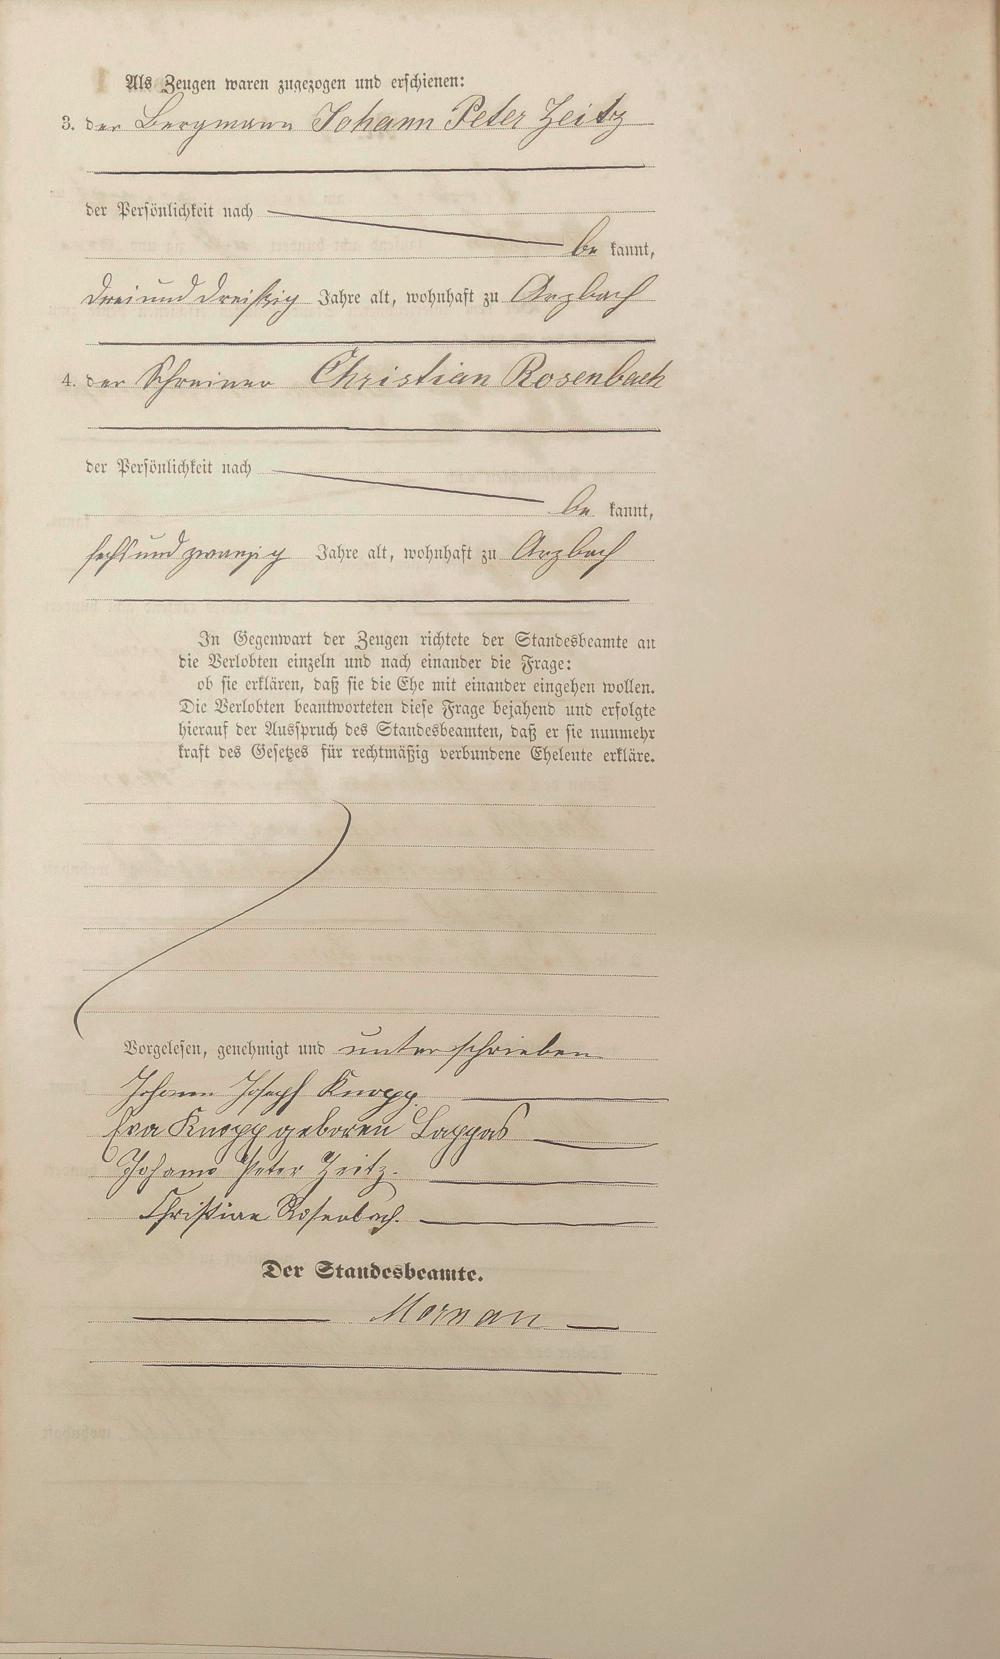 Als Zeugen waren zugezogen und erschienen:
3. der Bergmann Johann Peter Zeitz
der Persönlichkeit nach
be kannt,
drei und dreißig Jahre alt, wohnhaft zu Arzbach
4. der Schreiner Christian Rosenbach
der Persönlichkeit nach
be kannt,
sechs und zwanzig Jahre alt, wohnhaft zu Arzbach
In Gegenwart der Zeugen richtete der Standesbeamte an
die Verlobten einzeln und nach einander die Frage:
ob sie erklären, daß sie die Ehe mit einander eingehen wollen.
Die Verlobten beantworteten diese Frage bejahend und erfolgte
hierauf der Ausspruch des Standesbeamten, daß er sie nunmehr
kraft des Gesetzes für rechtmäßig verbundene Eheleute erkläre.
Vorgelesen, genehmigt und unterschrieben
Johann Joseph Knopp.
Eva Knopp geboren Lappas
Johann Peter Zeitz.
Christian Rosenbach.
Der Standesbeamte.